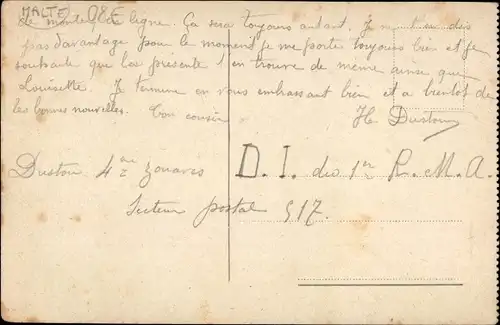 MALTE 08E
de monter en ligne. Ça sera toujours autant. Je ne t'en dis
pas d'avantage pour le moment je me porte toujours bien et je
souhaite que la présente t'en trouve de même ainsi que
Louisette. Je termine en vous embrassant bien et a bientot de
les bonnes nouvelles. Ton cousin
H. Duston
Duston 4e zouaves
Secteur postal 517.
D. I. du 1er R. M. A.